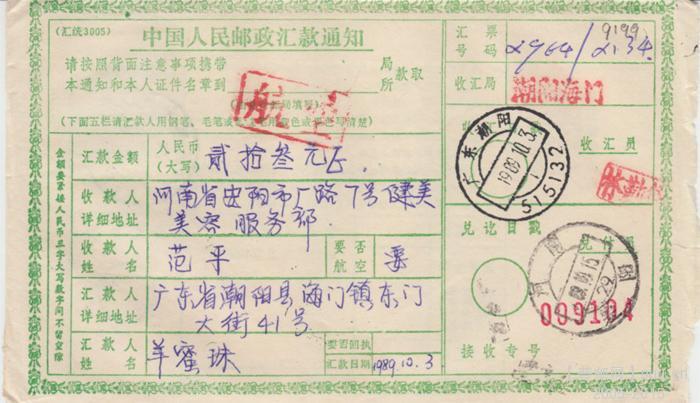 (汇统3005)
中国人民邮政汇款通知
请按照背面注意事项携带
本通知和本人证件名章到
局
所
取
款
航空
(下面五栏请汇款人用钢笔、毛笔或
汇票
号码
9199
2964/2134
收汇局
潮阳海门
收汇员
广东潮阳
1989.10.3
515132
汇款金额
人民币
(大写)
贰拾叁元正
收款人
详细地址
河南省安阳市厂路7号健美
美容服务部
收款人
姓名
范平
要否
航空
要
汇款人
详细地址
广东省潮阳县海门镇东门
大街41号
汇款人
姓名
羊蜜珠
要否回执
汇款日期
1989.10.3
兑讫日戳
兑付员
009104
接收专号
金额要紧接人民币三字大写数字间不留空隙